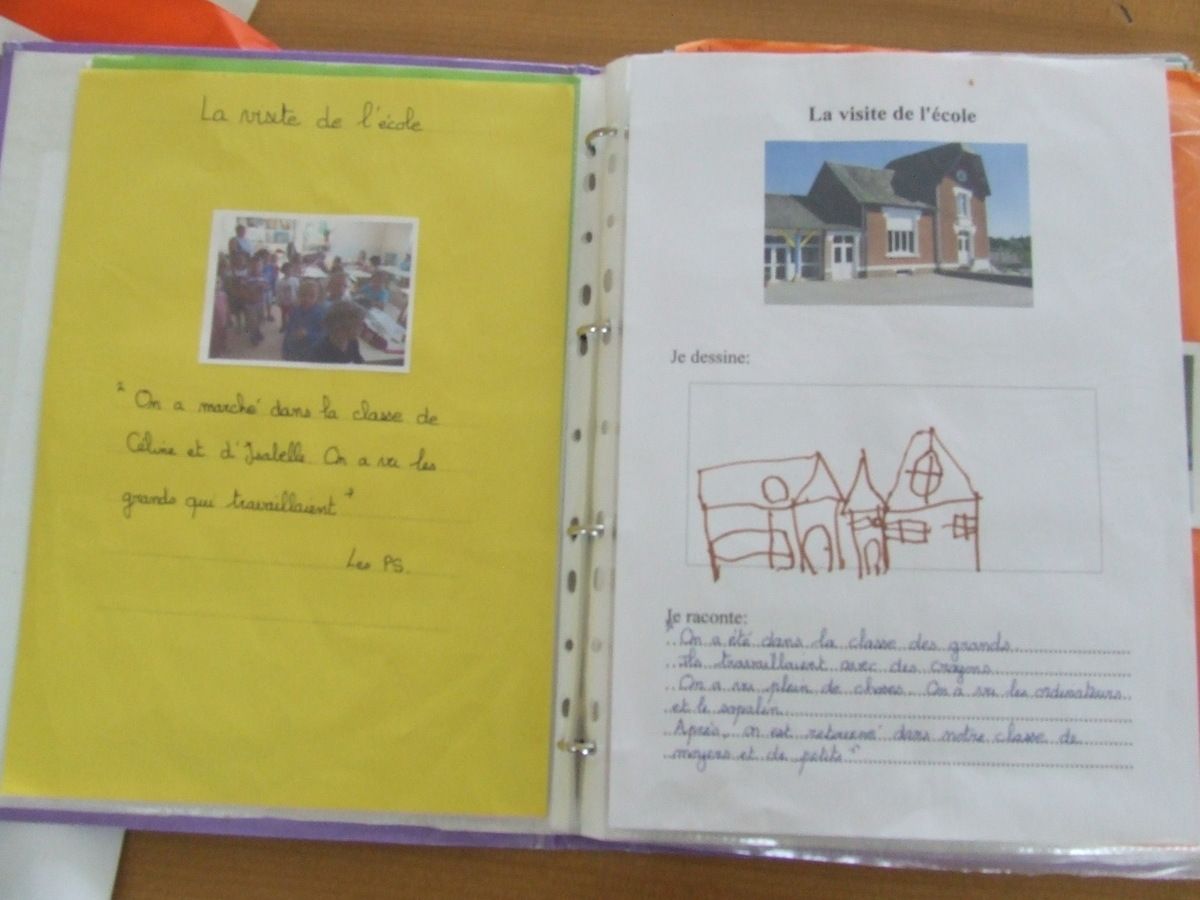 La visite de l'école
" On a marché dans la classe de
Céline et d'Isabelle. On a vu les
grands qui travaillaient "
Les PS.
La visite de l'école
Je dessine:
Je raconte:
" On a été dans la classe des grands.
Ils travaillaient avec des crayons.
On a vu plein de choses. On a vu les ordinateurs
et le sapalin.
Après, on est retourné dans notre classe de
moyens et de petits "